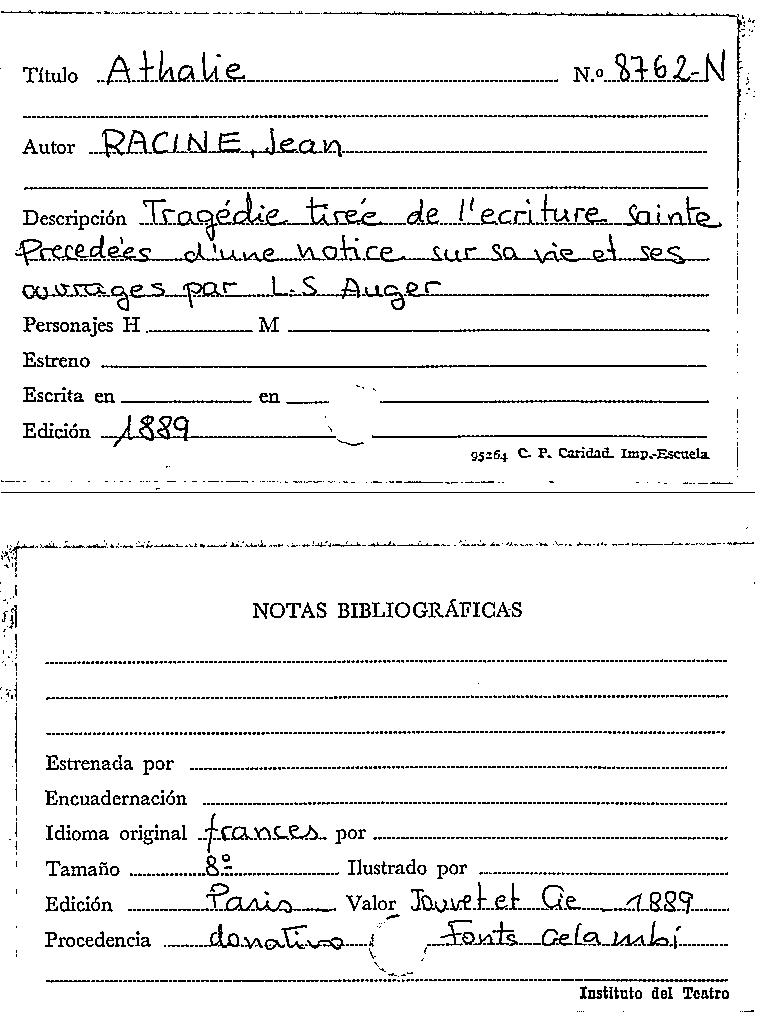 Título Athalie N.º 8762-N
Autor RACINE, Jean
Descripción Tragédie tireé de l'ecriture sainte
Precedeés d'une notice sur sa vie et ses
ouvrages par L.S Auger
Personajes H M
Estreno
Escrita en en
Edición 1889
95264 C. P. Caridad. Imp.-Escuela
NOTAS BIBLIOGRÁFICAS
Estrenada por
Encuadernación
Idioma original frances por
Tamaño 8º Ilustrado por
Edición Paris Valor Jouvet et Cie 1889
Procedencia donativo Fonts
Instituto del Teatro